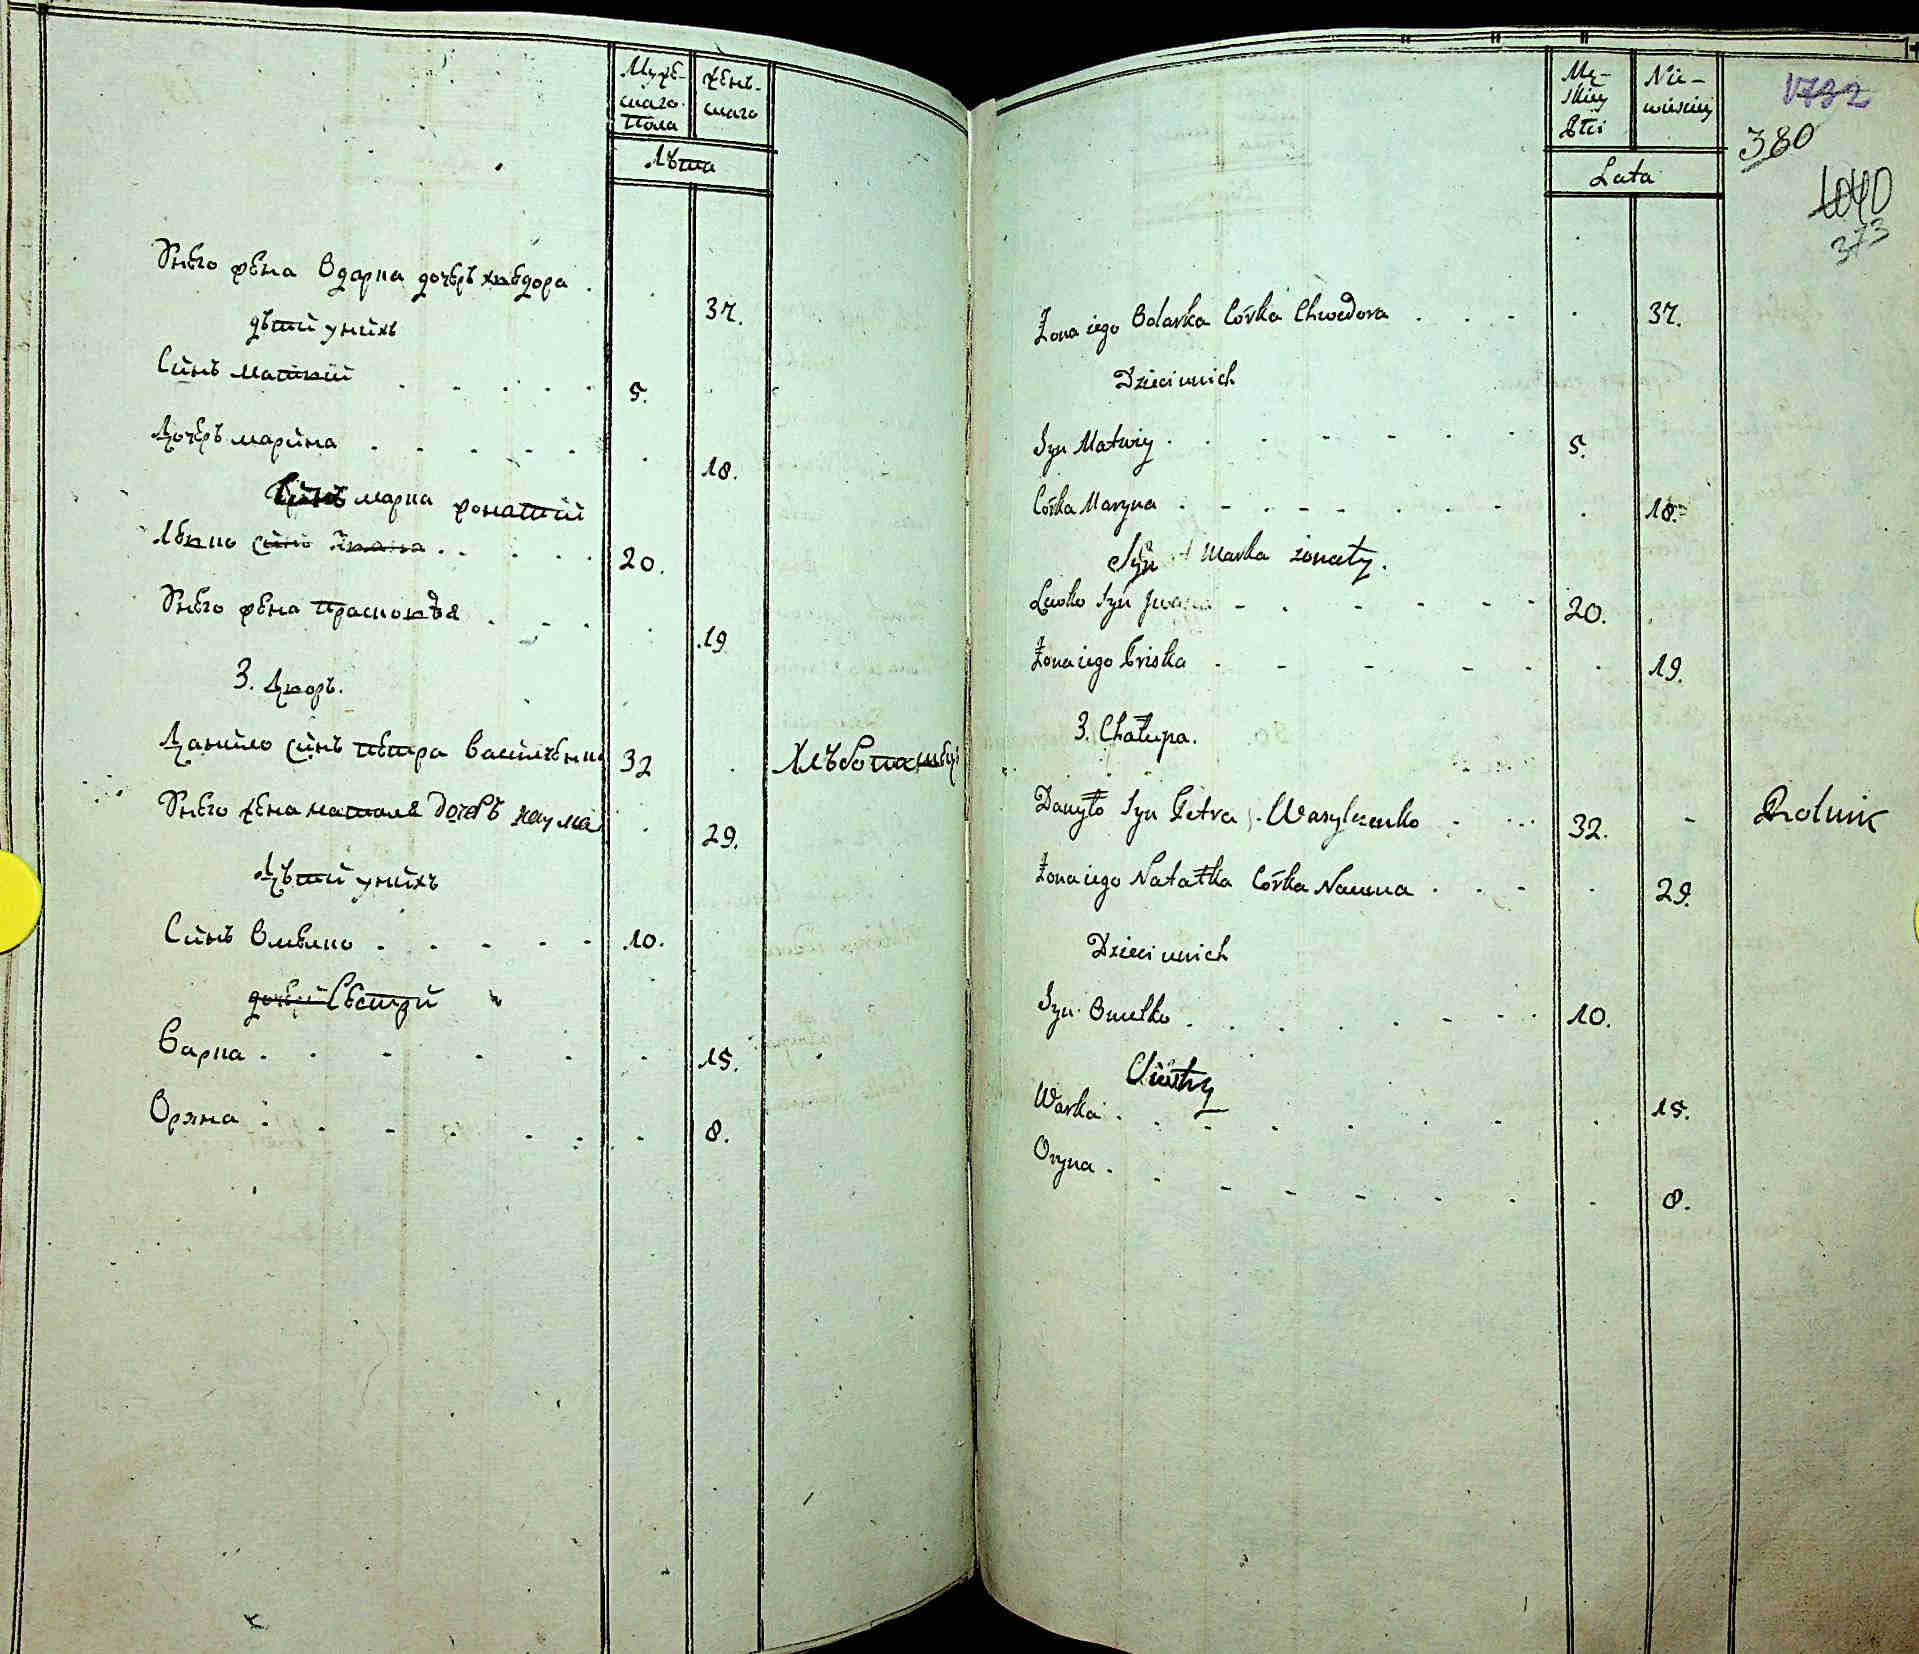 Муже-
скаго
Пола
жен-
скаго
Лѣта
Унего жена Одарка дочеръ хведора 37.
дѣти унихъ
Синъ Матвій 5.
Дочеръ марина 18.
Синъ марка жонатий
Левко синъ Ивана 20.
Унего жена Прасковѣя 19
3. Дворъ.
Данило синъ петра василченко 32 Хлѣбопашец
Унего жена наталя Дочеръ наума 29.
Дѣти унихъ
Синъ Омелко 10.
дочеки Сестри
Варка 15.
Орина 8.
Mę-
skiey
Płci
Nie-
wieściey
Lata
1792
380
1040
373
Żona iego Odarka Córka Chwedora 37.
Dzieci unich
Syn Matwiy 5.
Córka Maryna 18.
Syn Marka żonaty.
Lewko Syn Jwana 20.
Żona iego Priska 19.
3. Chałupa.
Danyło Syn Petra Wasylczenko 32. Rolnik
Żona iego Natałka Córka Nauma 29.
Dzieci unich
Syn Omelko 10.
Siestry
Warka 15.
Oryna 8.